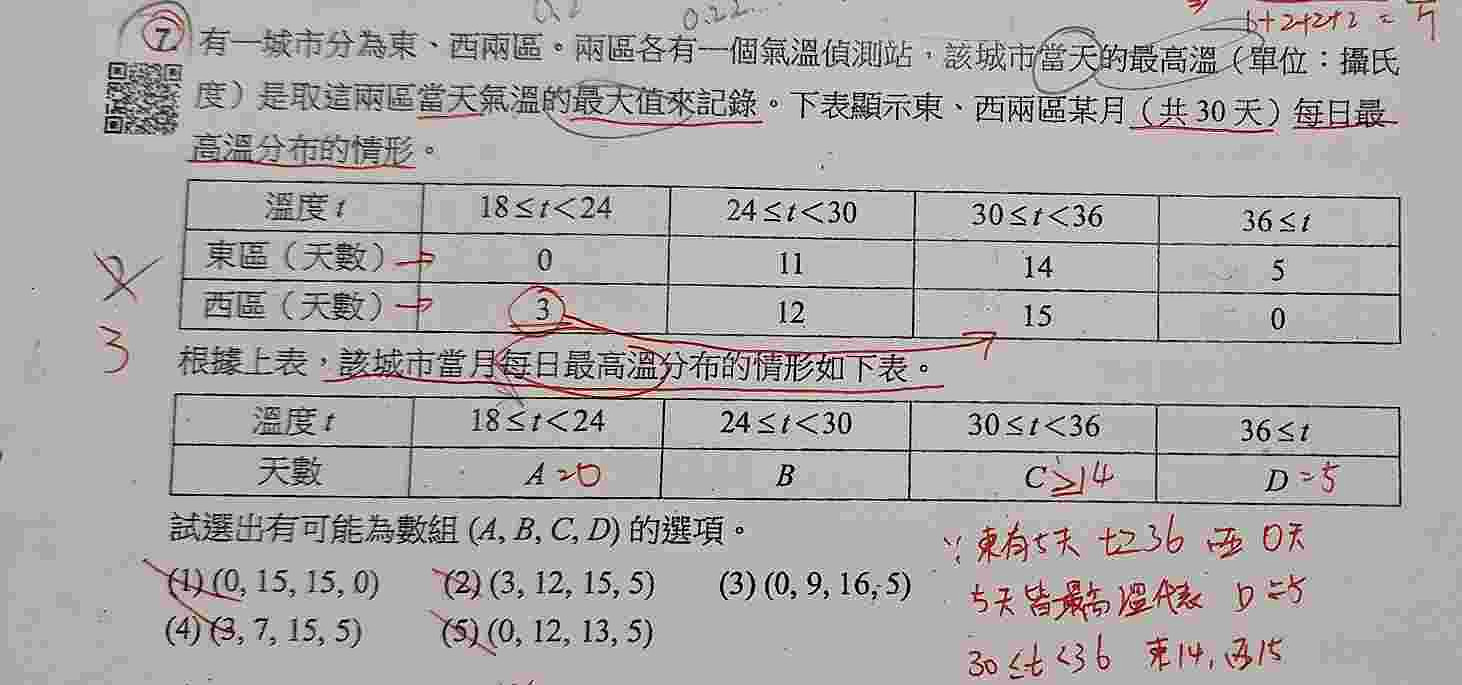 0.2 0.22...
1+2+2+2 =
7. 有一城市分為東、西兩區。兩區各有一個氣溫偵測站,該城市當天的最高溫(單位:攝氏
度)是取這兩區當天氣溫的最大值來記錄。下表顯示東、西兩區某月(共 30 天)每日最
高溫分布的情形。
溫度 t 18≤t<24 24≤t<30 30≤t<36 36≤t
東區(天數) 0 11 14 5
西區(天數) 3 12 15 0
3
根據上表,該城市當月每日最高溫分布的情形如下表。
溫度 t 18≤t<24 24≤t<30 30≤t<36 36≤t
天數 A =0 B C ≥14 D =5
試選出有可能為數組 (A, B, C, D) 的選項。
(1) (0, 15, 15, 0) (2) (3, 12, 15, 5) (3) (0, 9, 16, 5)
(4) (3, 7, 15, 5) (5) (0, 12, 13, 5)
∵ 東有5天 t≥36 西 0天
5天皆最高溫代表 D=5
30≤t<36 東14, 西15